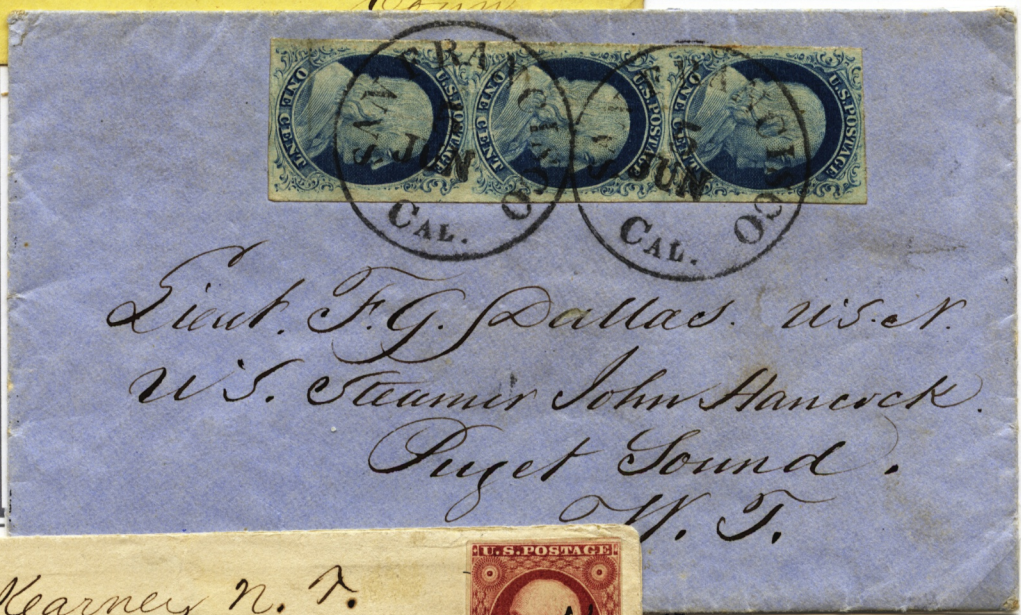 U.S. POSTAGE ONE CENT
U.S. POSTAGE ONE CENT
U.S. POSTAGE ONE CENT
SAN FRANCISCO
JUN
CAL.
SAN FRANCISCO
JUN
CAL.
Lieut. F. G. Dallas. U.S.N.
U S. Steamer John Hancock.
Puget Sound.
W. T.
U.S. POSTAGE
Kearney N. T.